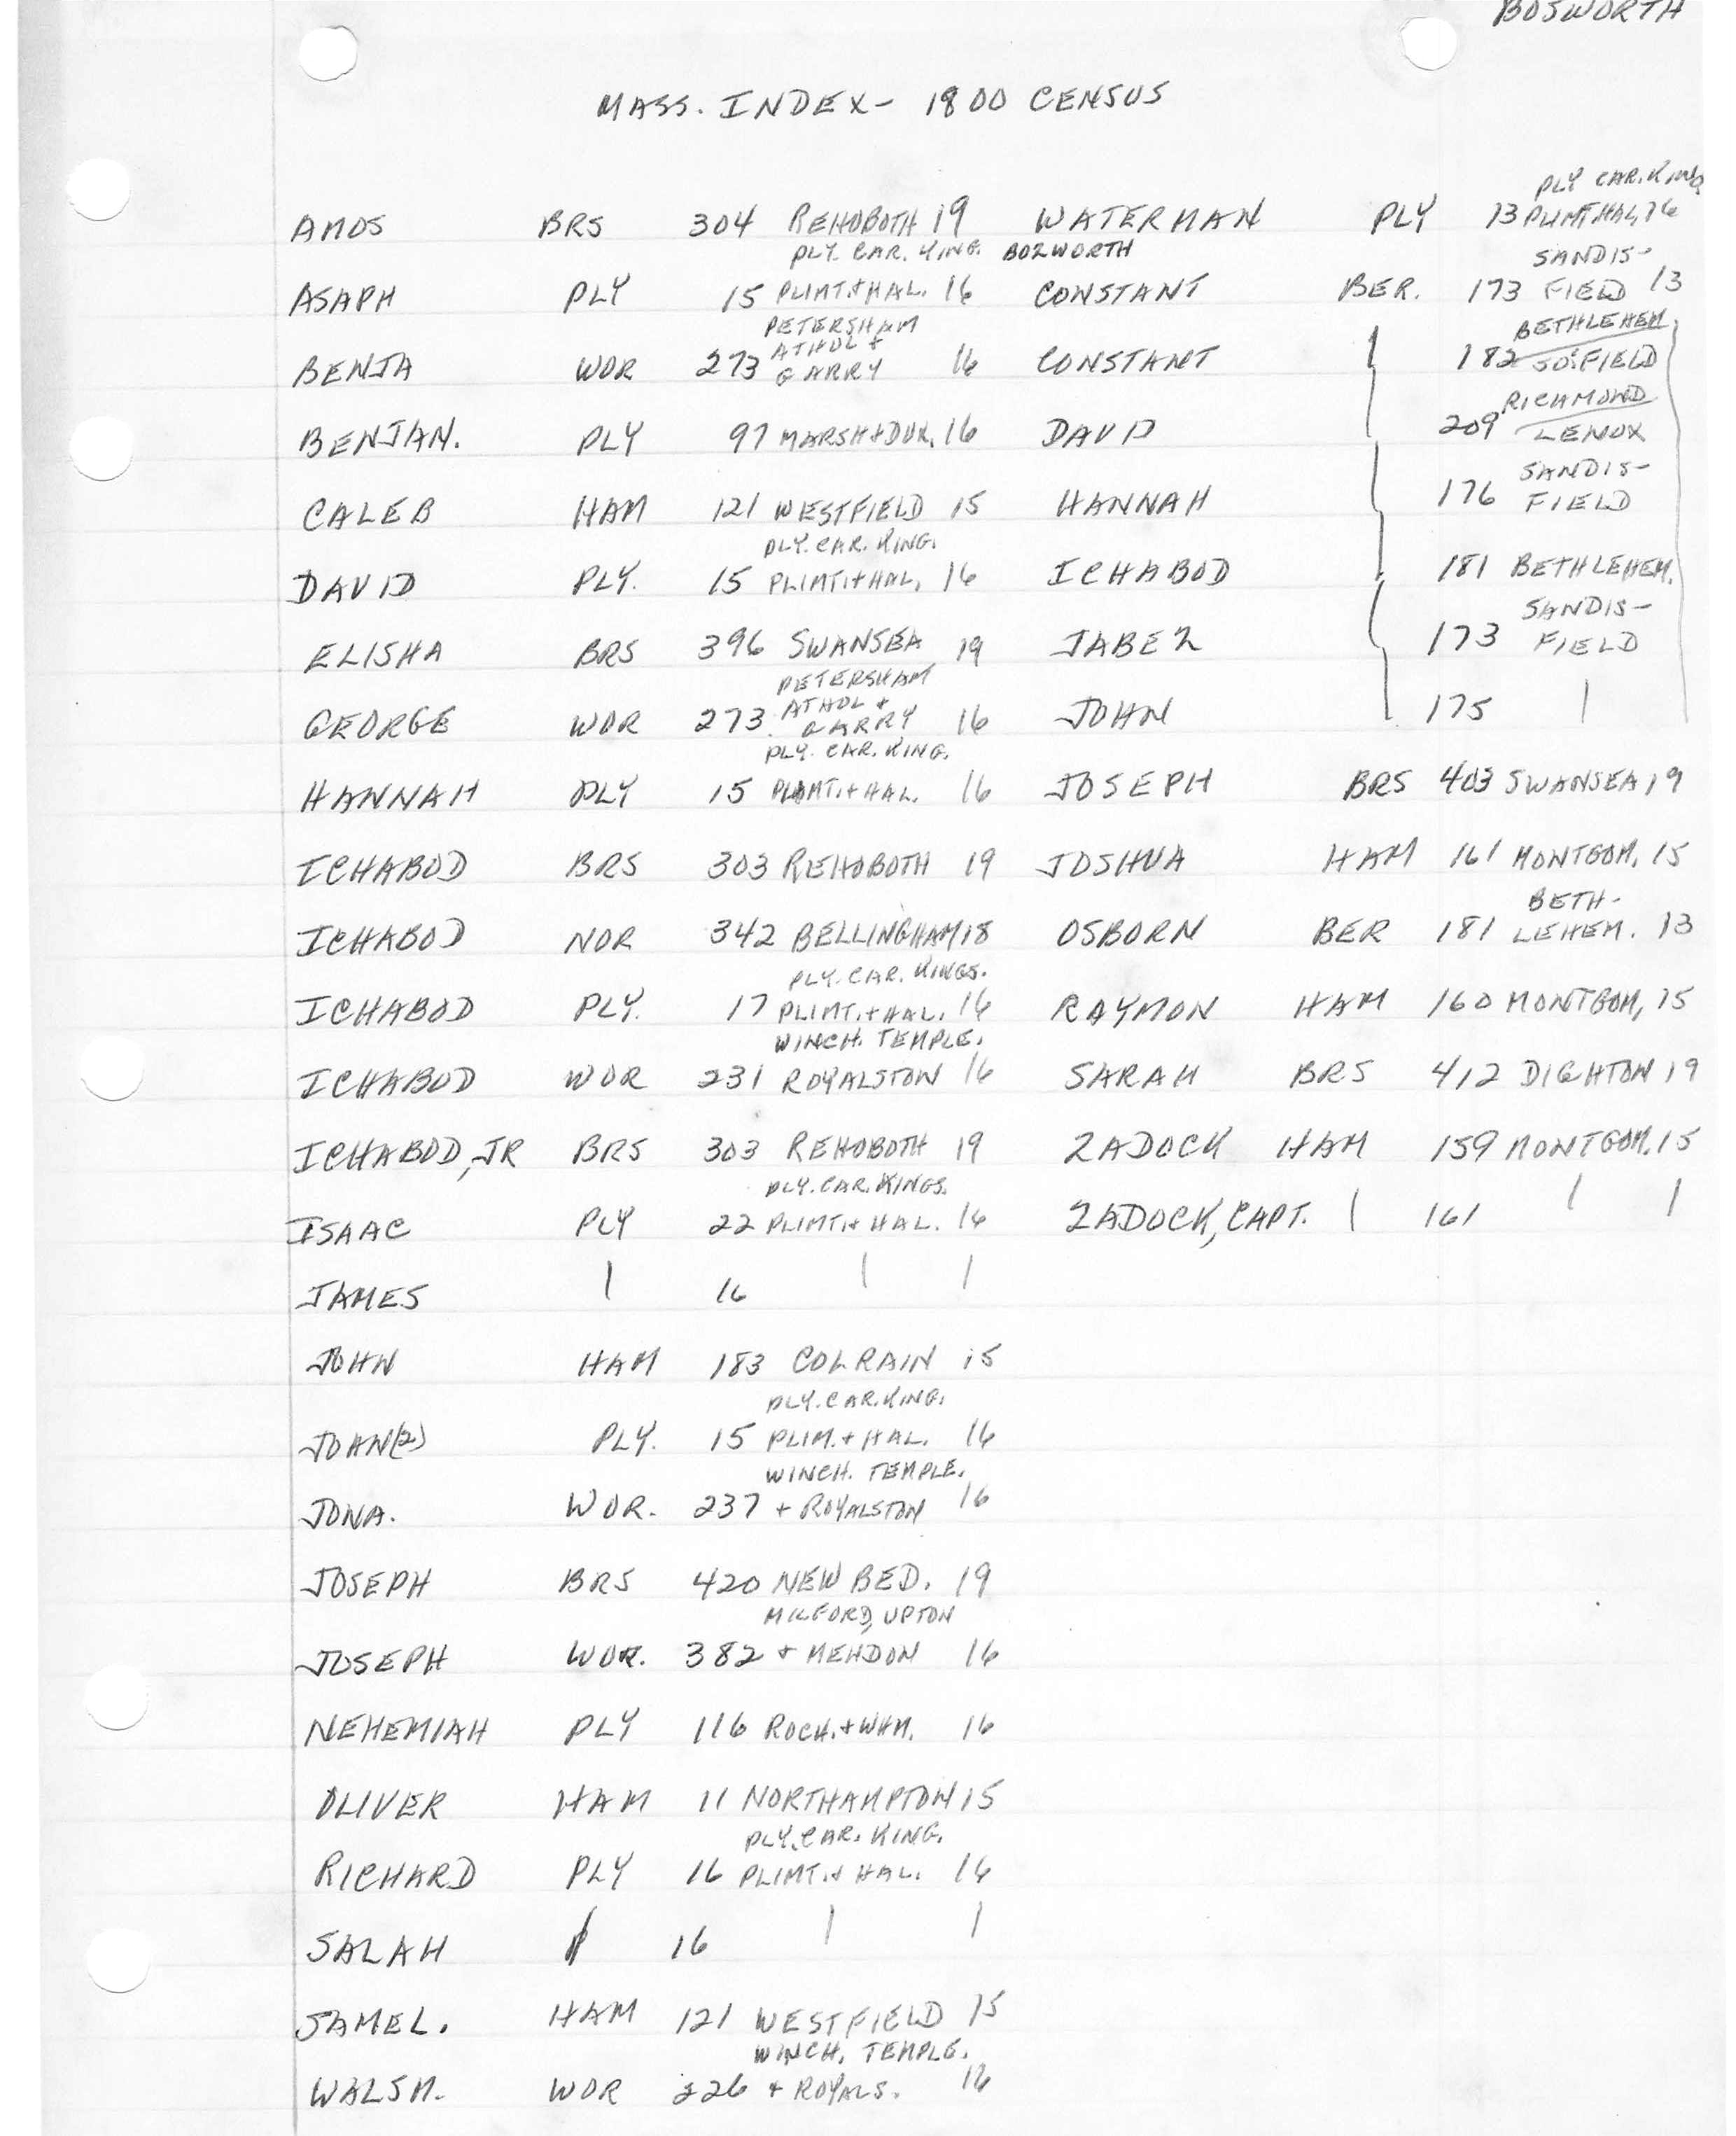 BOSWORTH
MASS. INDEX - 1800 CENSUS
AMOS BRS 304 REHOBOTH 19
PLY. CAR. KING.
ASAPH PLY 15 PLIMT.+HAL. 16
PETERSHAM
ATHOL +
BENJA WOR 273 GARRY 16
BENJAN. PLY 97 MARSH+DUX. 16
CALEB HAM 121 WESTFIELD 15
PLY. CAR. KING.
DAVID PLY. 15 PLIMT.+HAL. 16
ELISHA BRS 396 SWANSEA 19
PETERSHAM
ATHOL +
GEORGE WOR 273 GARRY 16
PLY. CAR. KING.
HANNAH PLY 15 PLIMT.+HAL. 16
ICHABOD BRS 303 REHOBOTH 19
ICHABOD NOR 342 BELLINGHAM 18
PLY. CAR. KINGS.
ICHABOD PLY. 17 PLIMT.+HAL. 16
WINCH. TEMPLE.
ICHABOD WOR 231 ROYALSTON 16
ICHABOD, JR BRS 303 REHOBOTH 19
PLY. CAR. KINGS.
ISAAC PLY 22 PLIMT.+HAL. 16
JAMES | 16 | |
JOHN HAM 183 COLRAIN 15
PLY. CAR. KING.
JOHN(2) PLY. 15 PLIM.+HAL. 16
WINCH. TEMPLE.
JONA. WOR. 237 + ROYALSTON 16
JOSEPH BRS 420 NEW BED. 19
MILFORD, UPTON
JOSEPH WOR. 382 + MENDON 16
NEHEMIAH PLY 116 ROCH.+WHM. 16
OLIVER HAM 11 NORTHAMPTON 15
PLY. CAR. KING.
RICHARD PLY 16 PLIMT.+HAL. 16
SALAH | 16 | |
SAMEL. HAM 121 WESTFIELD 15
WINCH. TEMPLE.
WALSM. WOR 226 + ROYALS. 16
PLY CAR. KING
WATERMAN PLY 13 PLIMT.HAL, 16
BOZWORTH
SANDIS-
CONSTANT BER. 173 FIELD 13
BETHLEHEM
CONSTANT 182 SO.FIELD
RICHMOND
DAVID 209 LENOX
SANDIS-
HANNAH 176 FIELD
ICHABOD 181 BETHLEHEM.
SANDIS-
JABEZ 173 FIELD
JOHN 175 |
JOSEPH BRS 403 SWANSEA 19
JOSHUA HAM 161 MONTGOM. 15
BETH-
OSBORN BER 181 LEHEM. 13
RAYMON HAM 160 MONTGOM, 15
SARAH BRS 412 DIGHTON 19
ZADOCK HAM 159 MONTGOM. 15
ZADOCK, CAPT. | 161 | |